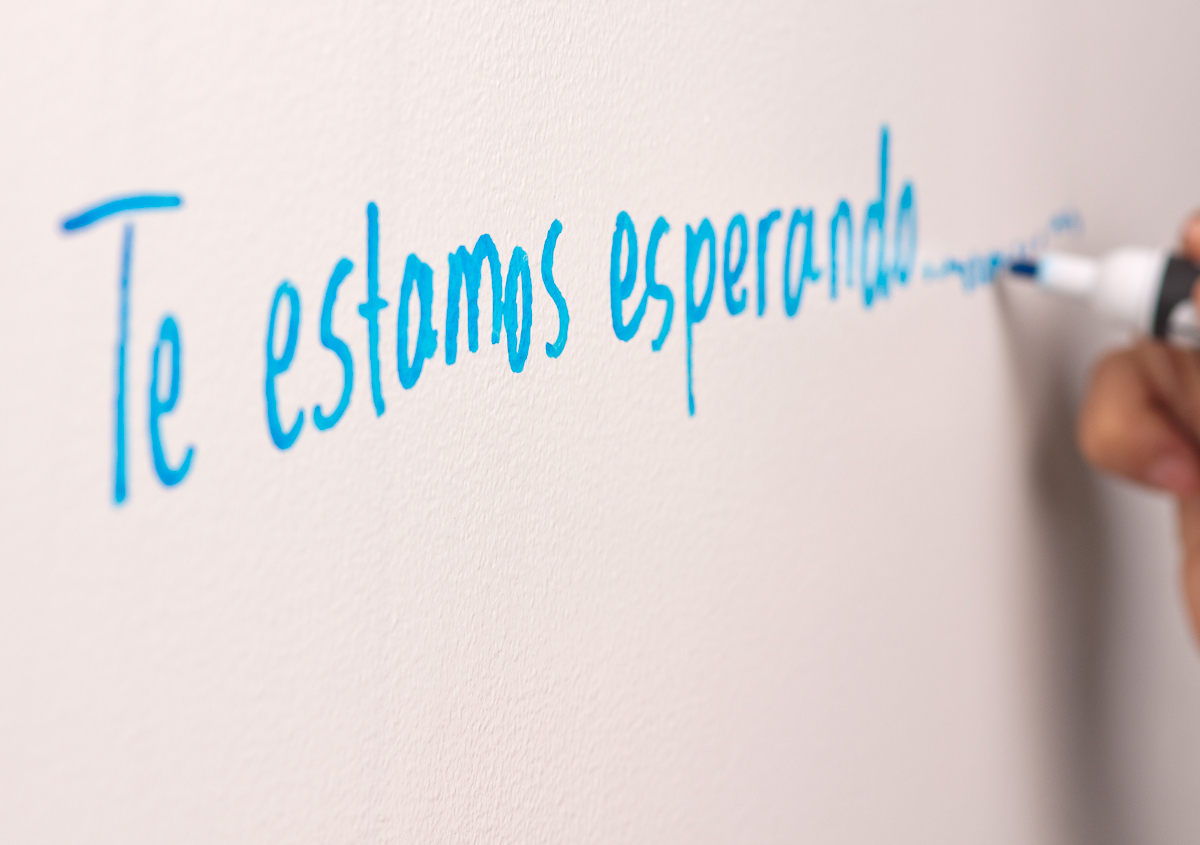 Te estamos esperando